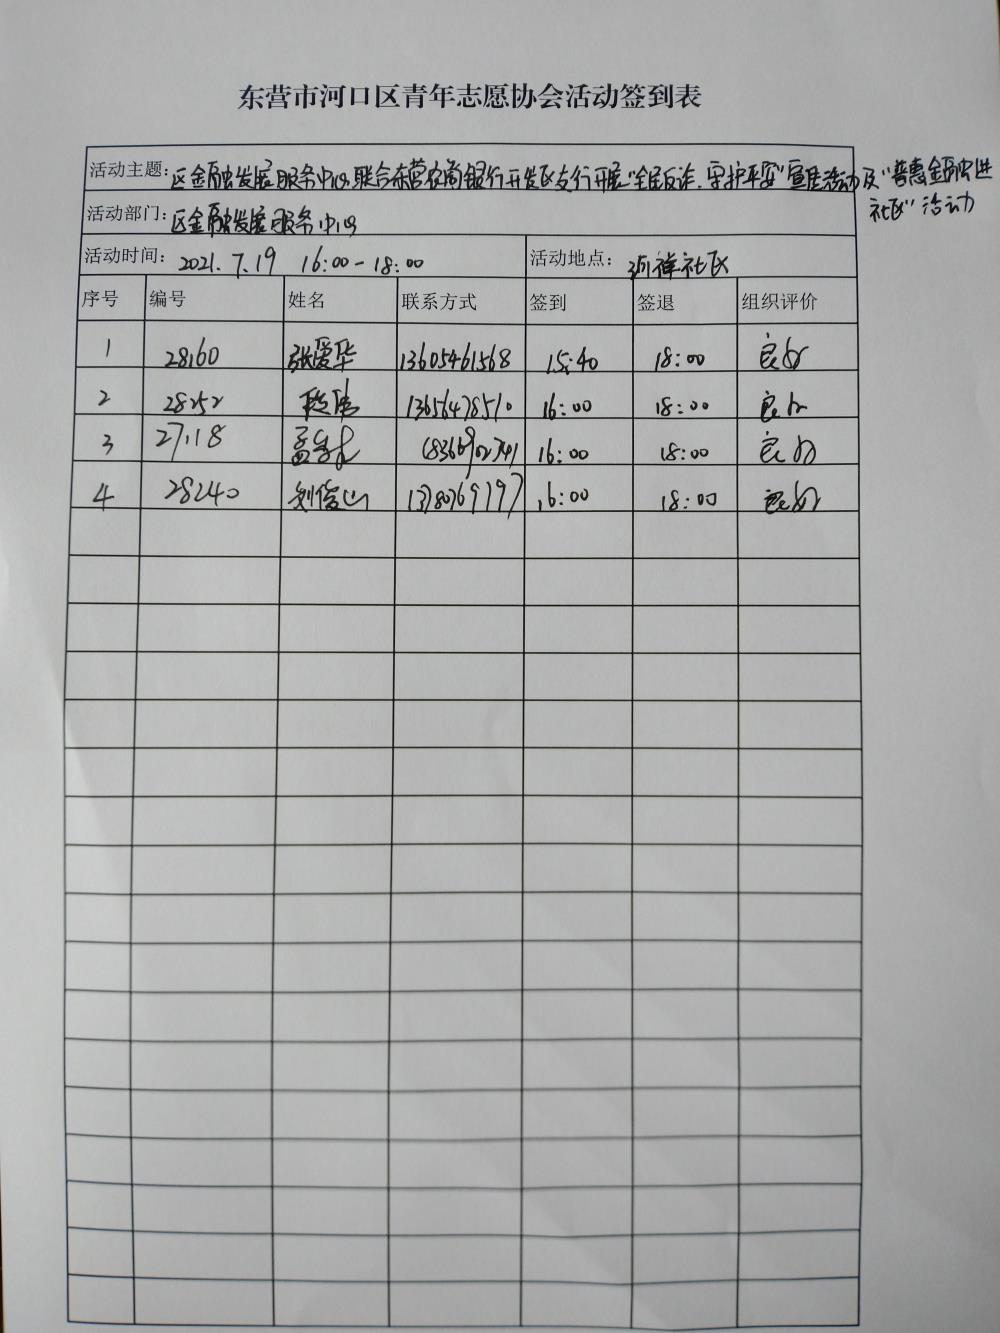 东营市河口区青年志愿协会活动签到表
活动主题：区金融发展服务中心联合东营农商银行开发区支行开展"全民反诈.守护平安"宣传活动及"普惠金融进
社区"活动
活动部门：区金融发展服务中心
活动时间： 2021.7.19 16:00-18:00 活动地点：河祥社区
序号 编号 姓名 联系方式 签到 签退 组织评价
1 28160 张爱华 13605461568 15:40 18:00 良好
2 28252 13656478510 16:00 18:00 良好
3 27118 18366902741 16:00 18:00 良好
4 28240 刘俊山 16:00 18:00 良好